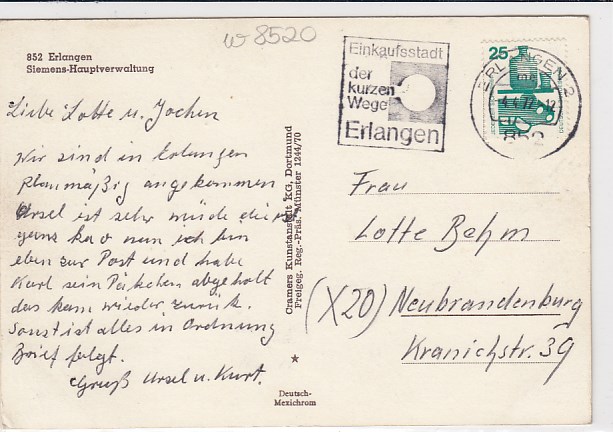 w 8520
852 Erlangen
Siemens-Hauptverwaltung
Liebe Lotte u. Jochen
Wir sind in Erlangen
planmäßig angekommen
Ursel ist sehr müde die ist
ganz kao nun ich bin
eben zur Post und habe
Kurt sein Päkchen abgeholt
das kam wieder zurück.
Sonst ist alles in Ordnung
Brief folgt.
Gruß Ursel u. Kurt.
Cramers Kunstanstalt KG, Dortmund
Freigeg. Reg.-Präs. Münster 1244/70
*
Deutsch-
Mexichrom
Einkaufsstadt
der
kurzen
Wege
Erlangen
25
ERLANGEN 2
852
Frau
Lotte Behm
(X20) Neubrandenburg
Kranichstr. 39